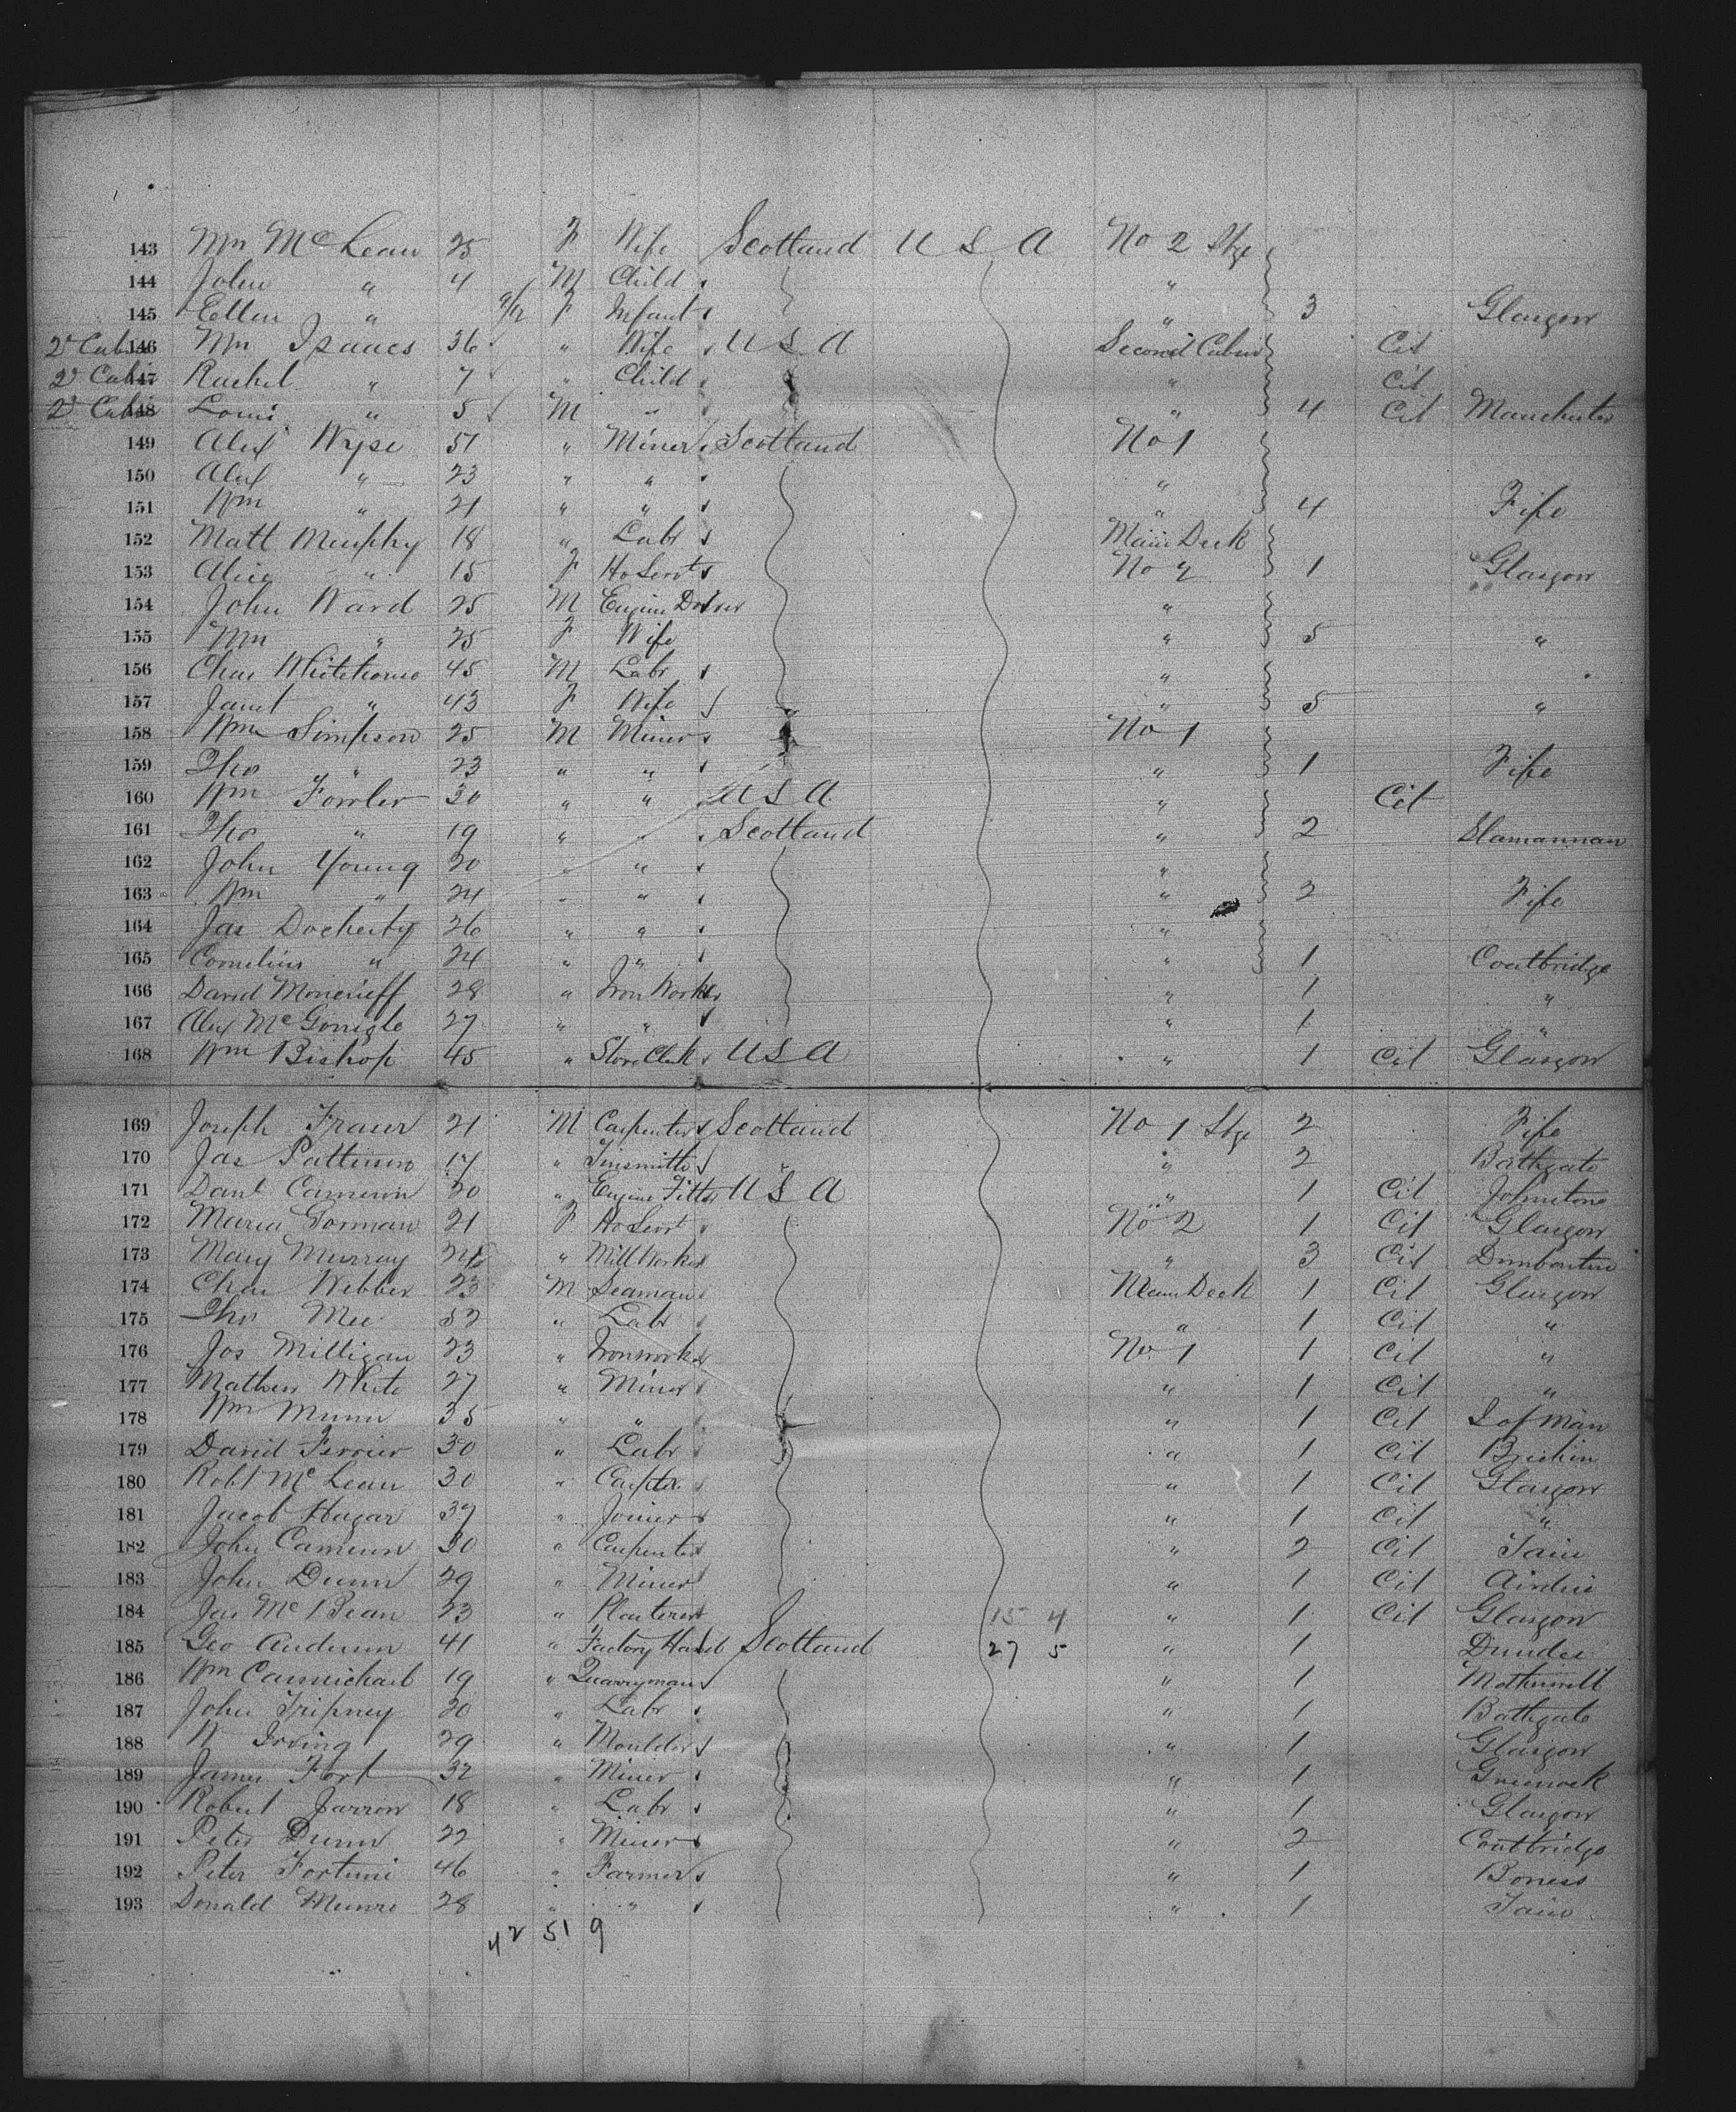 143 Mrs McLean 25 F Wife Scotland U S A No 2 Stge
144 John " 4 M Child "
145 Ellen " 9/12 F Infant " 3 Glasgow
2d Cabin 146 Mrs Isaacs 36 " Wife U S A Second Cabin Cit
2d Cabin 147 Rachel " 7 " Child " Cit
2d Cabin 148 Louis " 5 M " " 4 Cit Manchester
149 Alex Wyse 51 " Miner Scotland No 1
150 Alex " 23 " " "
151 Wm " 21 " " " 4 Fife
152 Matt Murphy 18 " Labr Main Deck
153 Alice " 15 F Ho Servt No 2 1 Glasgow
154 John Ward 25 M Engine Driver "
155 Mrs " 25 F Wife " 5 "
156 Chas Whitehouse 45 M Labr "
157 Janet " 43 F Wife " 5 "
158 Wm Simpson 25 M Miner No 1
159 Thos " 23 " " " 1 Fife
160 Wm Fowler 30 " " U S A " Cit
161 Thos " 19 " " Scotland " 2 Slamannan
162 John Young 20 " " "
163 Wm " 24 " " " 2 Fife
164 Jas Docherty 26 " " "
165 Cornelius " 24 " " " 1 Coatbridge
166 David Moncrieff 28 " Iron Worker " 1 "
167 Alex McGonigle 27 " " " 1 "
168 Wm Bishop 45 " Store Clerk U S A " 1 Cit Glasgow
169 Joseph Fraser 21 M Carpenter Scotland No 1 Stge 2 Fife
170 Jas Patterson 17 " Tinsmith " " 2 Bathgate
171 Danl Cameron 20 " Engine Fitter U S A " 1 Cit Johnstone
172 Maria Gorman 21 F Ho Servt No 2 1 Cit Glasgow
173 Mary Murray 24 " Mill Worker " 3 Cit Dumbarton
174 Chas Webber 23 M Seaman Main Deck 1 Cit Glasgow
175 Thos Mee 52 " Labr " 1 Cit "
176 Jos Milligan 23 " Ironworker No 1 1 Cit "
177 Mathew White 27 " Miner " 1 Cit "
178 Wm Munn 35 " " " 1 Cit I of Man
179 David Ferrier 30 " Labr " 1 Cit Brechin
180 Robt McLean 30 " Carptr " 1 Cit Glasgow
181 Jacob Hagar 37 " Joiner " 1 Cit "
182 John Cameron 30 " Carpenter " 2 Cit Tain
183 John Dunn 29 " Miner " 1 Cit Airdrie
184 Jas McBean 23 " Plasterer 15 4 " 1 Cit Glasgow
185 Geo Anderson 41 " Factory Hand Scotland 27 5 " 1 Dundee
186 Wm Carmichael 19 " Quarryman " 1 Motherwell
187 John Tripney 20 " Labr " 1 Bathgate
188 W Irving 29 " Moulder " 1 Glasgow
189 James Fort 32 " Miner " 1 Greenock
190 Robert Jarron 18 " Labr " 1 Glasgow
191 Peter Dunn 22 " Miner " 2 Coatbridge
192 Peter Fortune 46 " Farmer " 1 Boness
193 Donald Munro 28 " " " 1 Tain
42 51 9